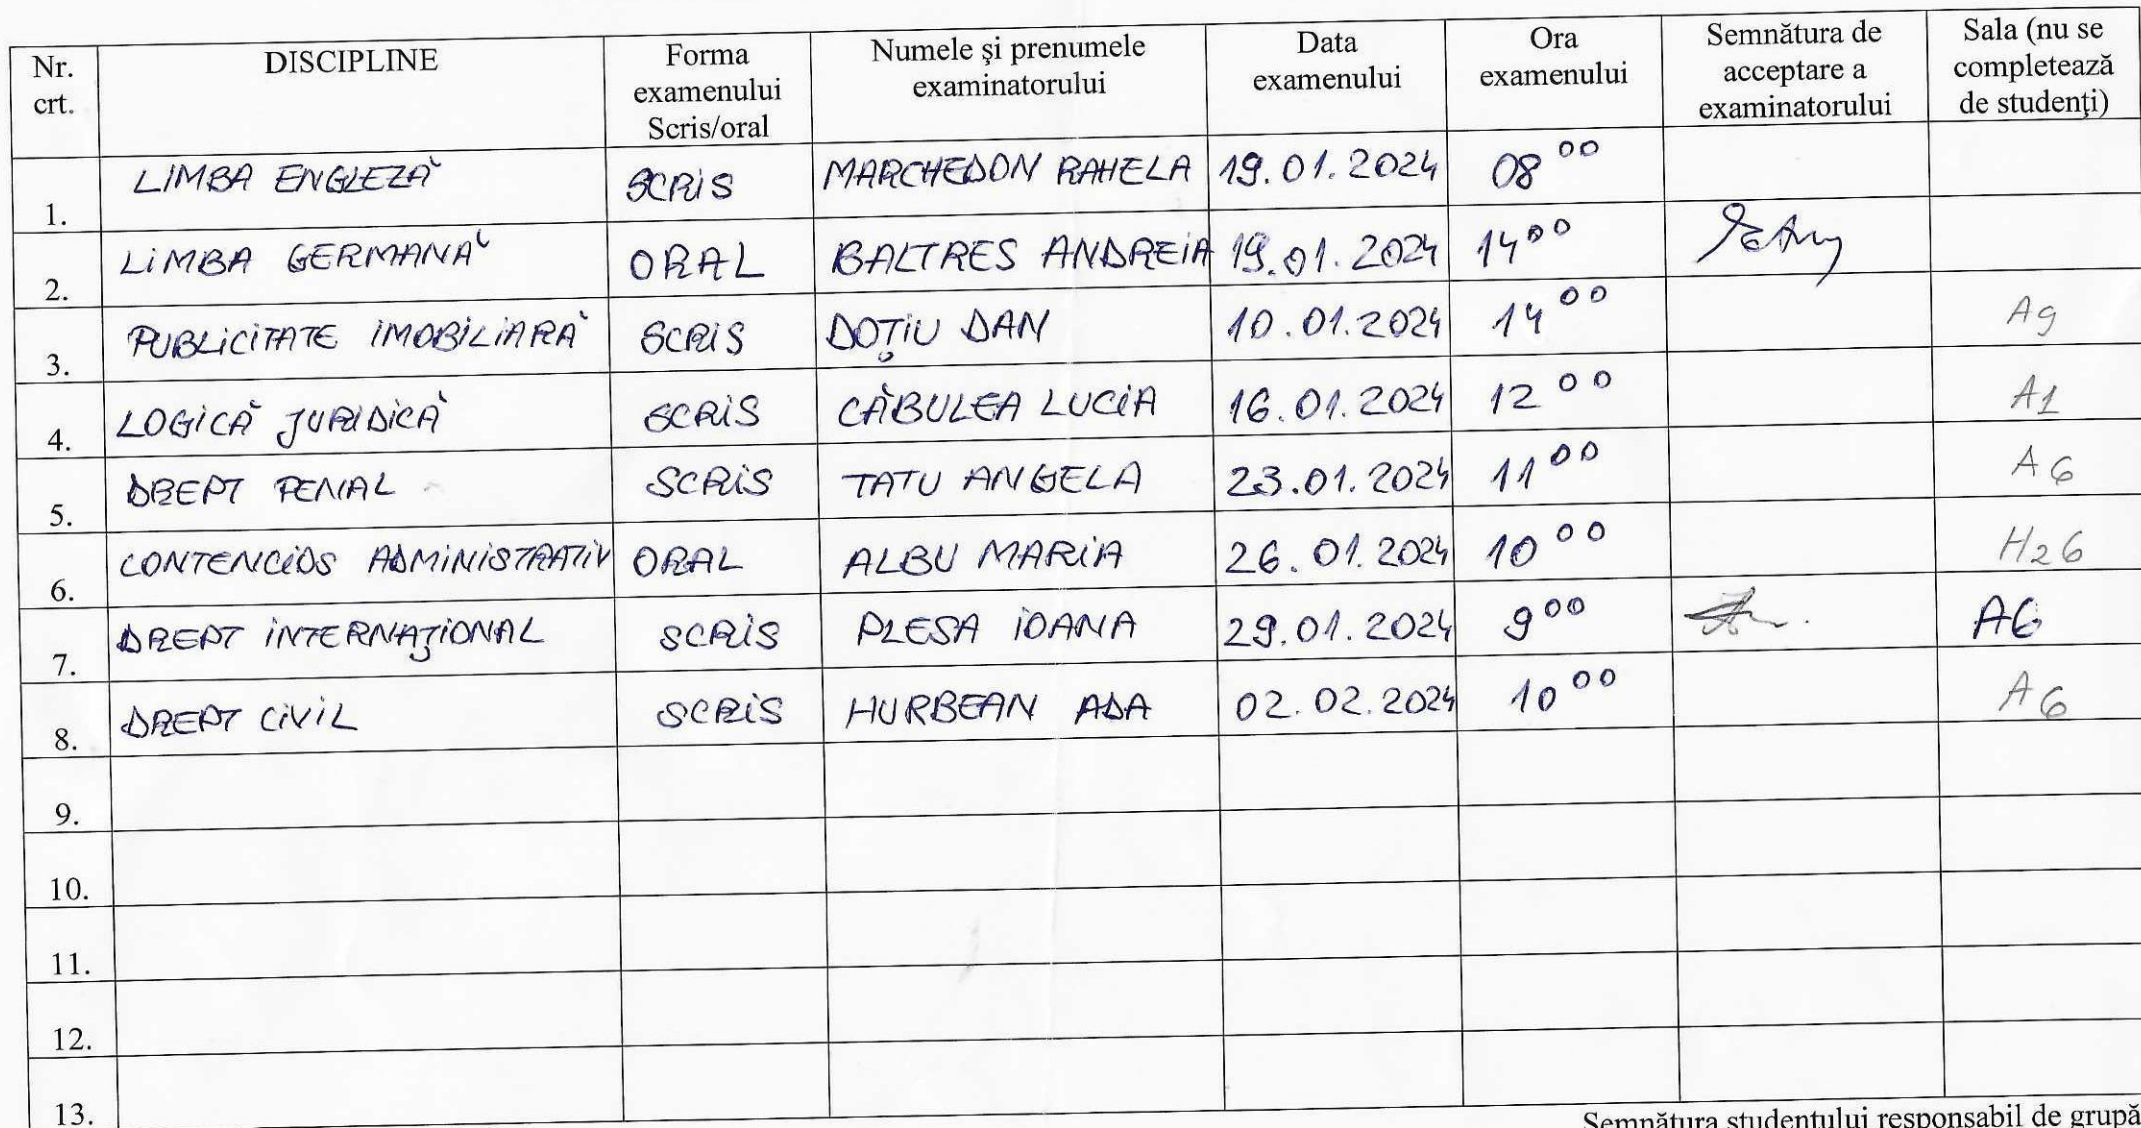 Nr. crt. DISCIPLINE Forma examenului Scris/oral Numele şi prenumele examinatorului Data examenului Ora examenului Semnătura de acceptare a examinatorului Sala (nu se completează de studenţi)
1. LIMBA ENGLEZĂ SCRIS MARCHEDON RAHELA 19.01.2024 08 00
2. LIMBA GERMANĂ ORAL BALTRES ANDREIA 19.01.2024 14 00
3. PUBLICITATE IMOBILIARĂ SCRIS DOŢIU DAN 10.01.2024 14 00 A9
4. LOGICĂ JURIDICĂ SCRIS CĂBULEA LUCIA 16.01.2024 12 00 A1
5. DREPT PENAL SCRIS TATU ANGELA 23.01.2024 11 00 A6
6. CONTENCIOS ADMINISTRATIV ORAL ALBU MARIA 26.01.2024 10 00 H26
7. DREPT INTERNAŢIONAL SCRIS PLESA IOANA 29.01.2024 9 00 A6
8. DREPT CIVIL SCRIS HURBEAN ADA 02.02.2024 10 00 A6
9.
10.
11.
12.
13.
Semnătura studentului responsabil de grupă